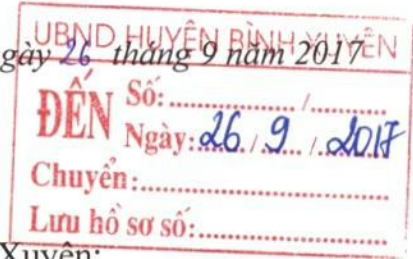 UBND HUYỆN BÌNH XUYÊN
gày 26 tháng 9 năm 2017
ĐẾN Số: ................ / ...........
Ngày: 26 / 9 / 2017
Chuyển: ...............................
Lưu hồ sơ số: ........................
Xuyên: